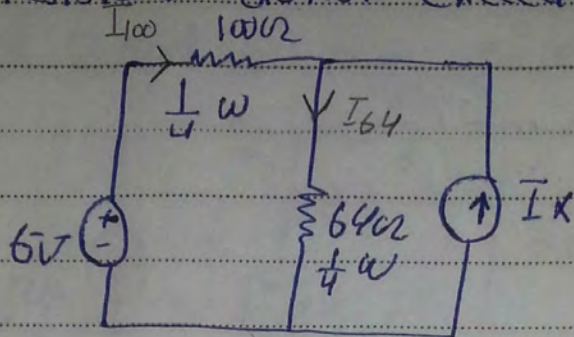 I100 100Ω
1/4 W
I64
6V
+
-
64Ω
1/4 W
Ix